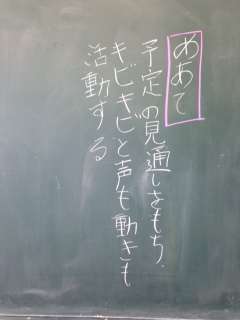 めあて
予定の見通しをもち、
キビキビと声も動きも
活動する